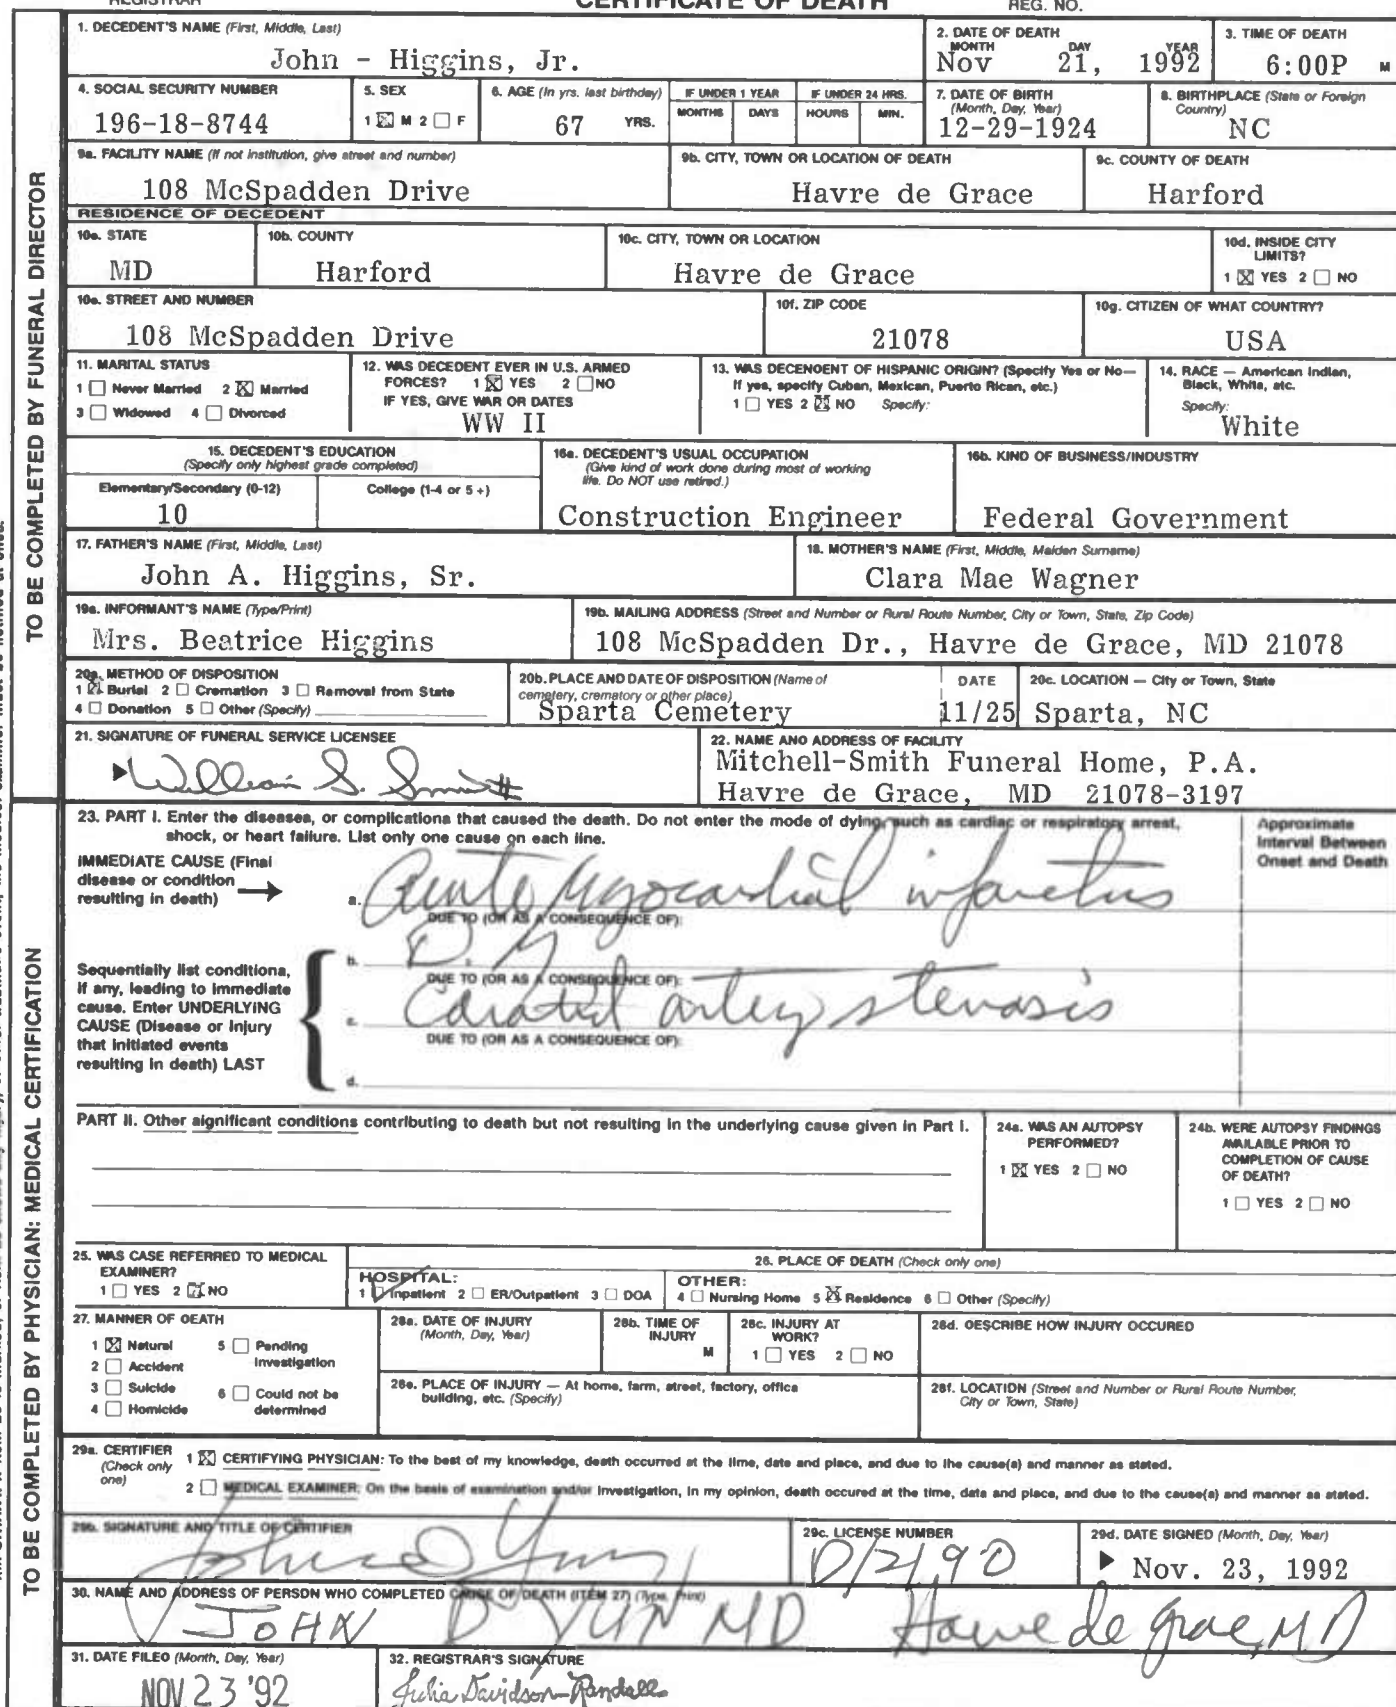 REGISTRAR CERTIFICATE OF DEATH REG. NO.
1. DECEDENT'S NAME (First, Middle, Last)
John - Higgins, Jr.
2. DATE OF DEATH
MONTH DAY YEAR
Nov 21, 1992
3. TIME OF DEATH
6:00P M
4. SOCIAL SECURITY NUMBER
196-18-8744
5. SEX
1 ☒ M 2 ☐ F
6. AGE (In yrs. last birthday)
67 YRS.
IF UNDER 1 YEAR
MONTHS DAYS
IF UNDER 24 HRS.
HOURS MIN.
7. DATE OF BIRTH
(Month, Day, Year)
12-29-1924
8. BIRTHPLACE (State or Foreign
Country)
NC
9a. FACILITY NAME (If not institution, give street and number)
108 McSpadden Drive
9b. CITY, TOWN OR LOCATION OF DEATH
Havre de Grace
9c. COUNTY OF DEATH
Harford
RESIDENCE OF DECEDENT
10a. STATE
MD
10b. COUNTY
Harford
10c. CITY, TOWN OR LOCATION
Havre de Grace
10d. INSIDE CITY
LIMITS?
1 ☒ YES 2 ☐ NO
10e. STREET AND NUMBER
108 McSpadden Drive
10f. ZIP CODE
21078
10g. CITIZEN OF WHAT COUNTRY?
USA
11. MARITAL STATUS
1 ☐ Never Married 2 ☒ Married
3 ☐ Widowed 4 ☐ Divorced
12. WAS DECEDENT EVER IN U.S. ARMED
FORCES? 1 ☒ YES 2 ☐ NO
IF YES, GIVE WAR OR DATES
WW II
13. WAS DECENOENT OF HISPANIC ORIGIN? (Specify Yes or No—
If yes, specify Cuban, Mexican, Puerto Rican, etc.)
1 ☐ YES 2 ☒ NO Specify:
14. RACE — American Indian,
Black, White, etc.
Specify:
White
15. DECEDENT'S EDUCATION
(Specify only highest grade completed)
Elementary/Secondary (0-12) College (1-4 or 5 +)
10
16a. DECEDENT'S USUAL OCCUPATION
(Give kind of work done during most of working
life. Do NOT use retired.)
Construction Engineer
16b. KIND OF BUSINESS/INDUSTRY
Federal Government
17. FATHER'S NAME (First, Middle, Last)
John A. Higgins, Sr.
18. MOTHER'S NAME (First, Middle, Maiden Surname)
Clara Mae Wagner
19a. INFORMANT'S NAME (Type/Print)
Mrs. Beatrice Higgins
19b. MAILING ADDRESS (Street and Number or Rural Route Number, City or Town, State, Zip Code)
108 McSpadden Dr., Havre de Grace, MD 21078
20a. METHOD OF DISPOSITION
1 ☒ Burial 2 ☐ Cremation 3 ☐ Removal from State
4 ☐ Donation 5 ☐ Other (Specify)
20b. PLACE AND DATE OF DISPOSITION (Name of
cemetery, crematory or other place)
Sparta Cemetery
DATE
11/25
20c. LOCATION — City or Town, State
Sparta, NC
21. SIGNATURE OF FUNERAL SERVICE LICENSEE
William S. Smith
22. NAME ANO ADDRESS OF FACILITY
Mitchell-Smith Funeral Home, P.A.
Havre de Grace, MD 21078-3197
23. PART I. Enter the diseases, or complications that caused the death. Do not enter the mode of dying, such as cardiac or respiratory arrest,
shock, or heart failure. List only one cause on each line.
Approximate
Interval Between
Onset and Death
IMMEDIATE CAUSE (Final
disease or condition
resulting in death)
a. Acute Myocardial infarctus
DUE TO (OR AS A CONSEQUENCE OF):
b.
DUE TO (OR AS A CONSEQUENCE OF):
Sequentially list conditions,
if any, leading to immediate
cause. Enter UNDERLYING
CAUSE (Disease or injury
that initiated events
resulting in death) LAST
c. Carotid artery stenosis
DUE TO (OR AS A CONSEQUENCE OF):
d.
PART II. Other significant conditions contributing to death but not resulting in the underlying cause given in Part I.
24a. WAS AN AUTOPSY
PERFORMED?
1 ☒ YES 2 ☐ NO
24b. WERE AUTOPSY FINDINGS
AVAILABLE PRIOR TO
COMPLETION OF CAUSE
OF DEATH?
1 ☐ YES 2 ☐ NO
25. WAS CASE REFERRED TO MEDICAL
EXAMINER?
1 ☐ YES 2 ☒ NO
26. PLACE OF DEATH (Check only one)
HOSPITAL:
1 ☐ Inpatient 2 ☐ ER/Outpatient 3 ☐ DOA
OTHER:
4 ☐ Nursing Home 5 ☒ Residence 6 ☐ Other (Specify)
27. MANNER OF OEATH
1 ☒ Natural 5 ☐ Pending
Investigation
2 ☐ Accident
3 ☐ Suicide 6 ☐ Could not be
determined
4 ☐ Homicide
28a. DATE OF INJURY
(Month, Day, Year)
28b. TIME OF
INJURY
M
28c. INJURY AT
WORK?
1 ☐ YES 2 ☐ NO
28d. OESCRIBE HOW INJURY OCCURED
28e. PLACE OF INJURY — At home, farm, street, factory, office
building, etc. (Specify)
28f. LOCATION (Street and Number or Rural Route Number,
City or Town, State)
29a. CERTIFIER
(Check only
one)
1 ☒ CERTIFYING PHYSICIAN: To the best of my knowledge, death occurred at the time, date and place, and due to the cause(s) and manner as stated.
2 ☐ MEDICAL EXAMINER: On the basis of examination and/or investigation, in my opinion, death occured at the time, data and place, and due to the cause(s) and manner as stated.
29b. SIGNATURE AND TITLE OF CERTIFIER
29c. LICENSE NUMBER
D12190
29d. DATE SIGNED (Month, Day, Year)
Nov. 23, 1992
30. NAME AND ADDRESS OF PERSON WHO COMPLETED CAUSE OF DEATH (ITEM 27) (Type, Print)
JOHN D YUN MD Havre de Grace, MD
31. DATE FILEO (Month, Day, Year)
NOV 23 '92
32. REGISTRAR'S SIGNATURE
Julia Davidson-Randall
TO BE COMPLETED BY FUNERAL DIRECTOR
TO BE COMPLETED BY PHYSICIAN: MEDICAL CERTIFICATION